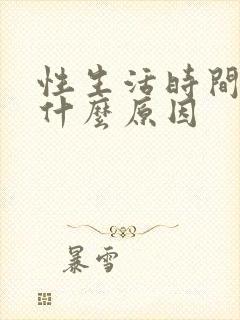 性生活時間
什麼原因
暴雪